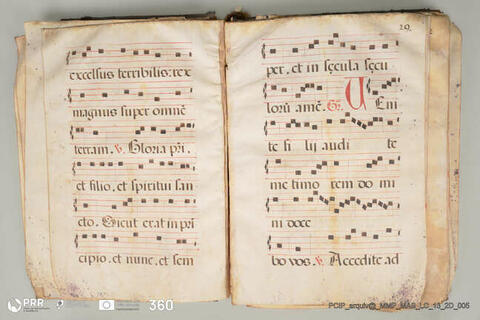 excelsus terribilis: rex
magnus super omnē
terram. ℣. Gloria pri.
et filio. et spiritui san
cto. Sicut erat in pri
cipio. et nunc. et sem
29.
per. et in sęcula sęcu
lorū amē. Gr. V Eni
te fi lij audi te
me timo rem do mi
ni doce
bo vos. ℣. Accedite ad
PRR
360
PCIP_arquivo_MMP_MAS_LC_13_2D_005